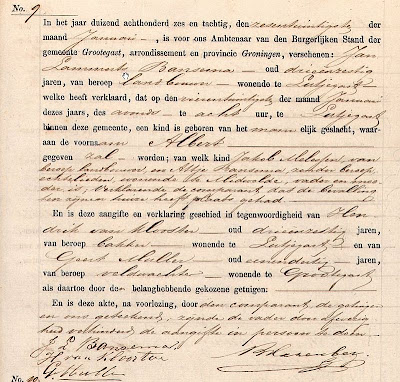 No. 9
In het jaar duizend achthonderd zes en tachtig, den zesentwintigste der
maand Januari, is voor ons Ambtenaar van den Burgerlijken Stand der
gemeente Grootegast, arrondissement en provincie Groningen, verschenen: Jan
Lammerts Bansema oud drieenzestig
jaren, van beroep landbouwer wonende te Lutjegast
welke heeft verklaard, dat op den vierentwintigste der maand Januari
dezes jaars, des avonds te acht ure, te Lutjegast
binnen deze gemeente, een kind is geboren van het mannelijk geslacht, waar-
aan de voornaam Albert
gegeven zal worden; van welk kind Jakob van
beroep landbouwer, en Bansema, zonder beroep
echtelieden, wonende te vader en moe-
der is, verklarende de comparant dat de bevalling
ten zijnen huize heeft plaats gehad
En is deze aangifte en verklaring geschied in tegenwoordigheid van Hen
drik van Klooster oud jaren,
van beroep bakker wonende te Lutjegast en van
Geert Muller oud jaren,
van beroep veldwachter wonende te Grootegast
als daartoe door den belanghebbende gekozene getuigen:
En is deze akte, na voorlezing, door den comparant, de getuigen
en ons geteekend, zijnde de vader door afwezig
heid verhinderd de aangifte in persoon te doen
J L Bansema
H van Klooster
G. Muller
No. 10